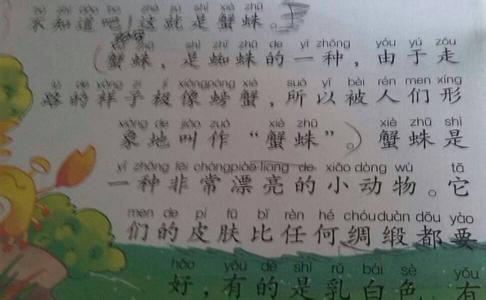 bù zhī dào ba zhè jiù shì xiè zhū
不知道吧！这就是蟹蛛。
xiè zhū shì zhī zhū de yì zhǒng yóu yú zǒu
蟹蛛，是蜘蛛的一种，由于走
lù de yàng zi jí xiàng páng xiè suǒ yǐ bèi rén men xíng
路的样子极像螃蟹，所以被人们形
xiàng de jiào zuò xiè zhū xiè zhū shì
象地叫作“蟹蛛”。蟹蛛是
yì zhǒng fēi cháng piào liang de xiǎo dòng wù tā
一种非常漂亮的小动物。它
men de pí fū bǐ rèn hé chóu duàn dōu yào
们的皮肤比任何绸缎都要
hǎo yǒu de shì rǔ bái sè yǒu
好，有的是乳白色，有